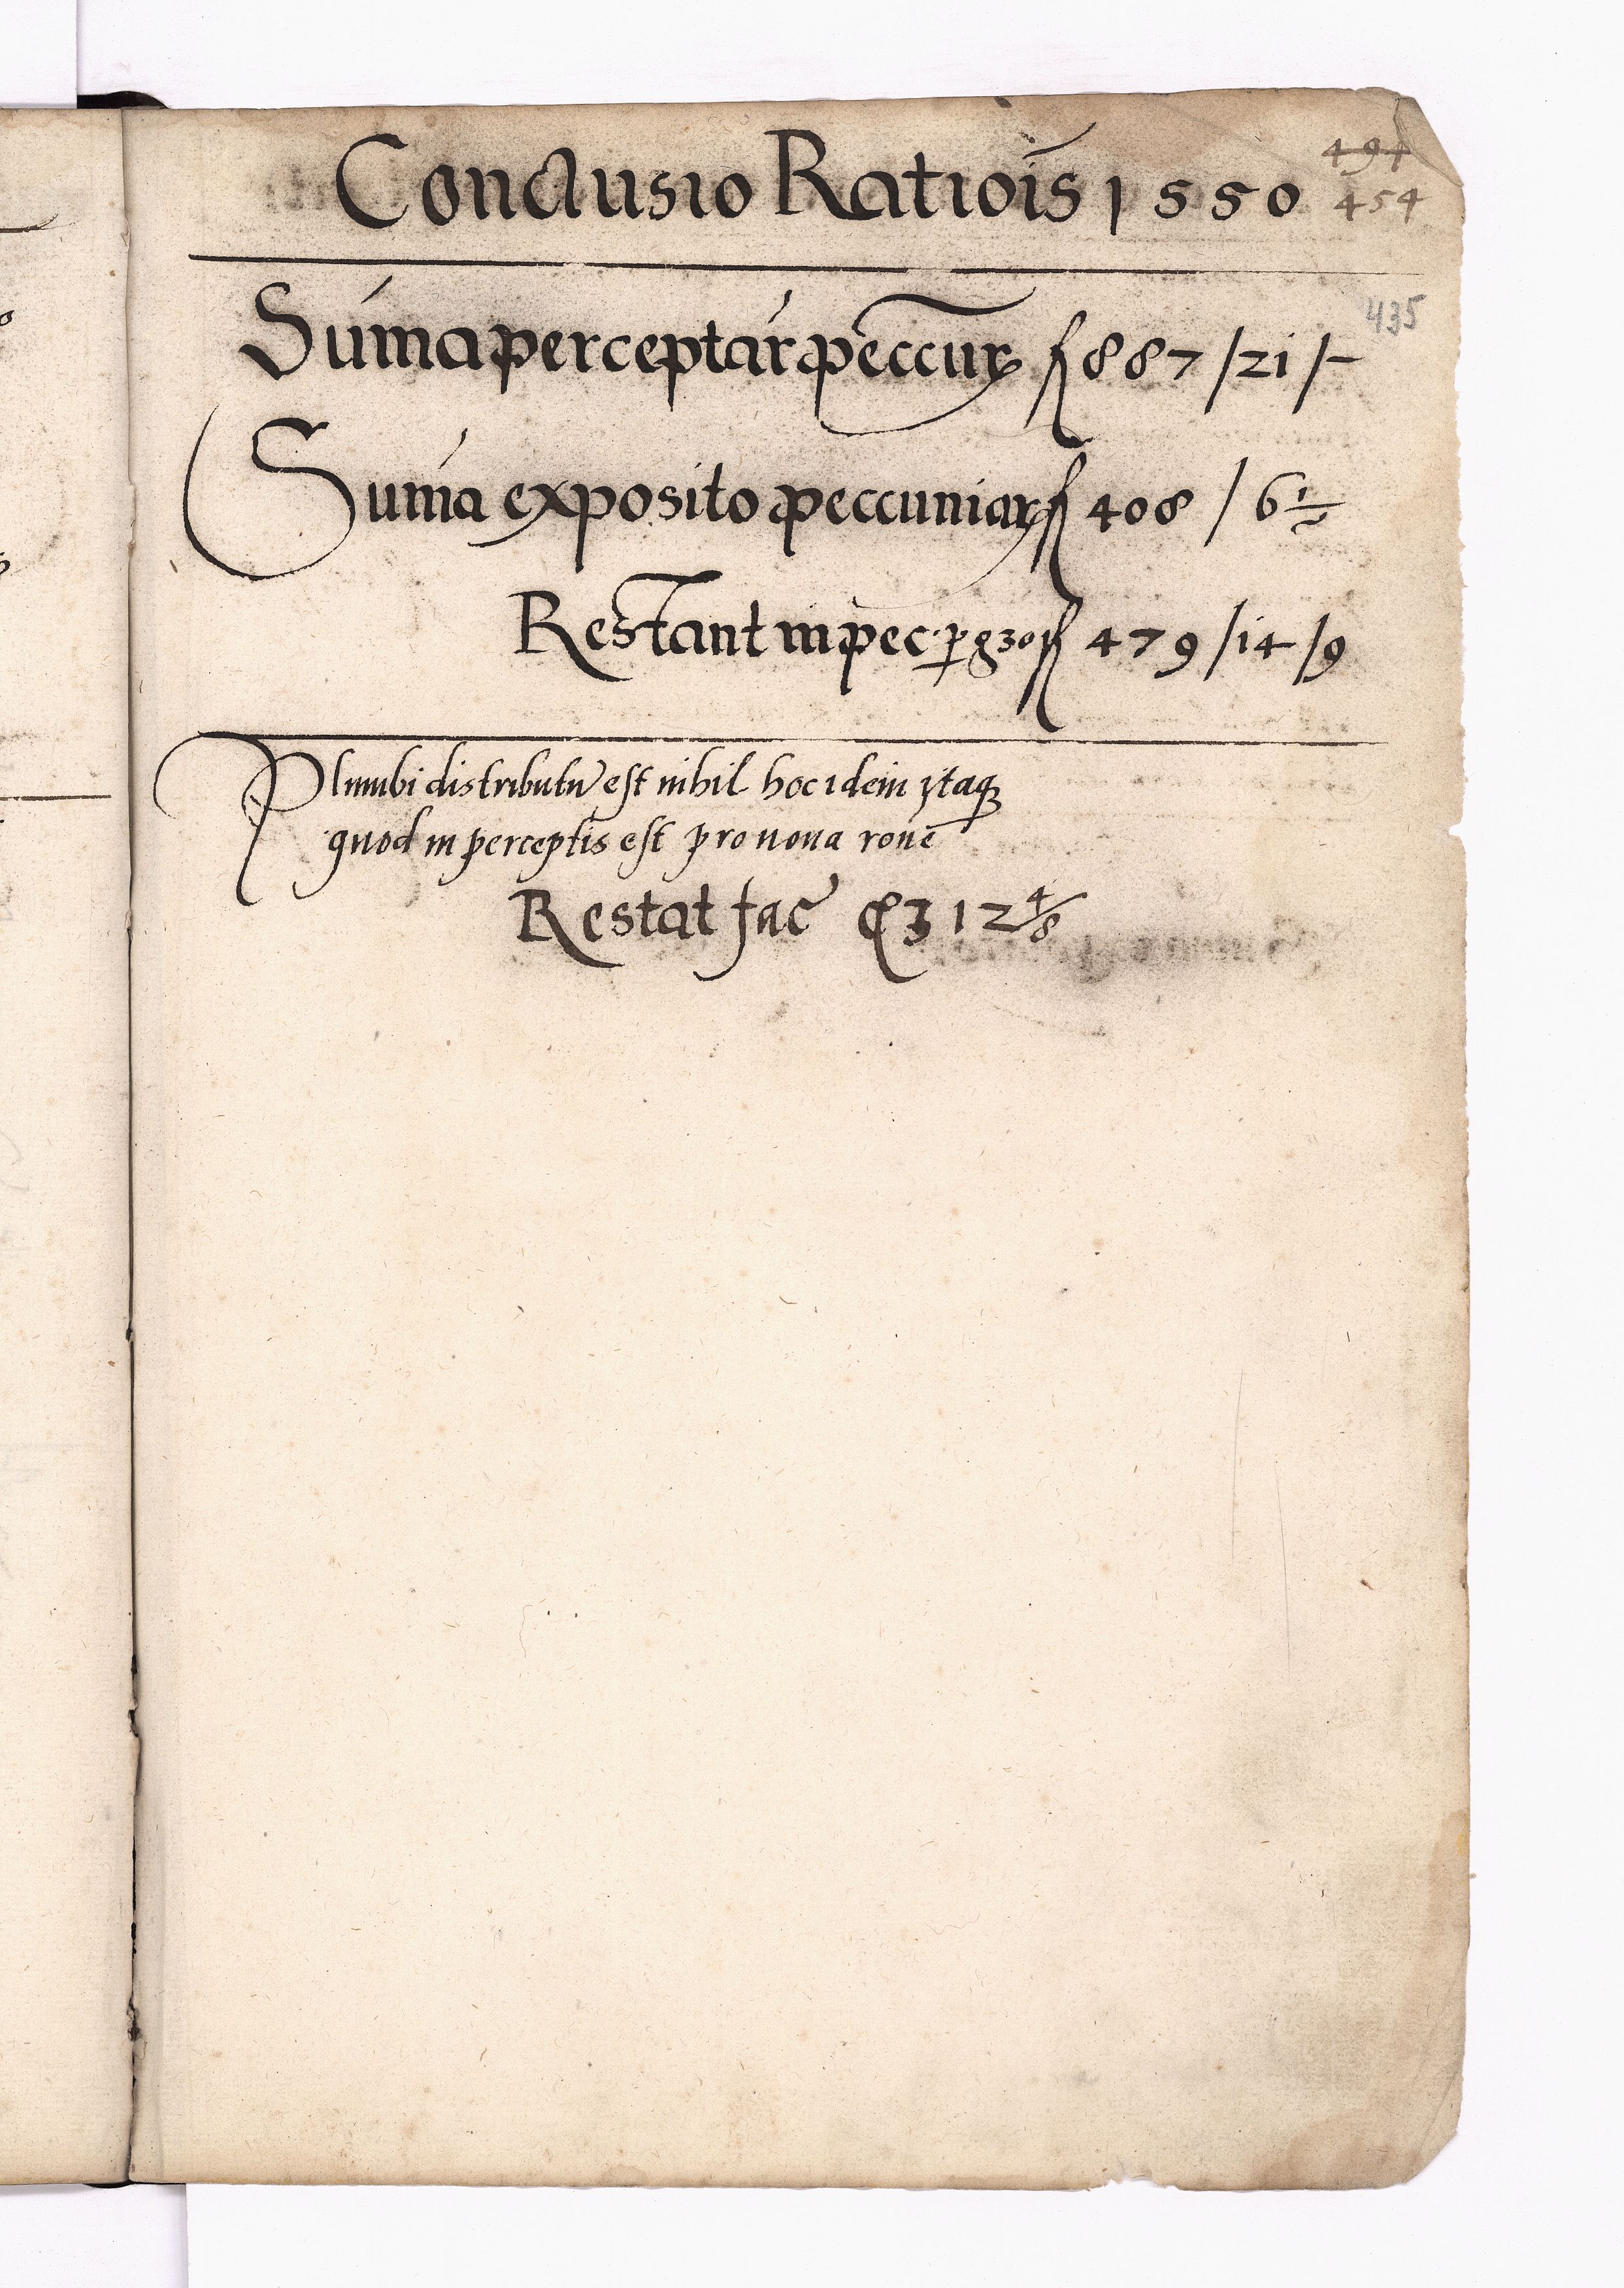 Conclusio Ratiois 1550
491
454
435
Suma perceptar peccuꝝ fl 887 /21 /-
Suma exposito peccuniaꝝ fl 408 / 6 1/2
Restant in pec: p g 30 fl 479 /14 /9
Plumbi distributu est nihil hoc idem ytaqꝫ
quod in perceptis est pro nova rone
Restat fac 312 4/8